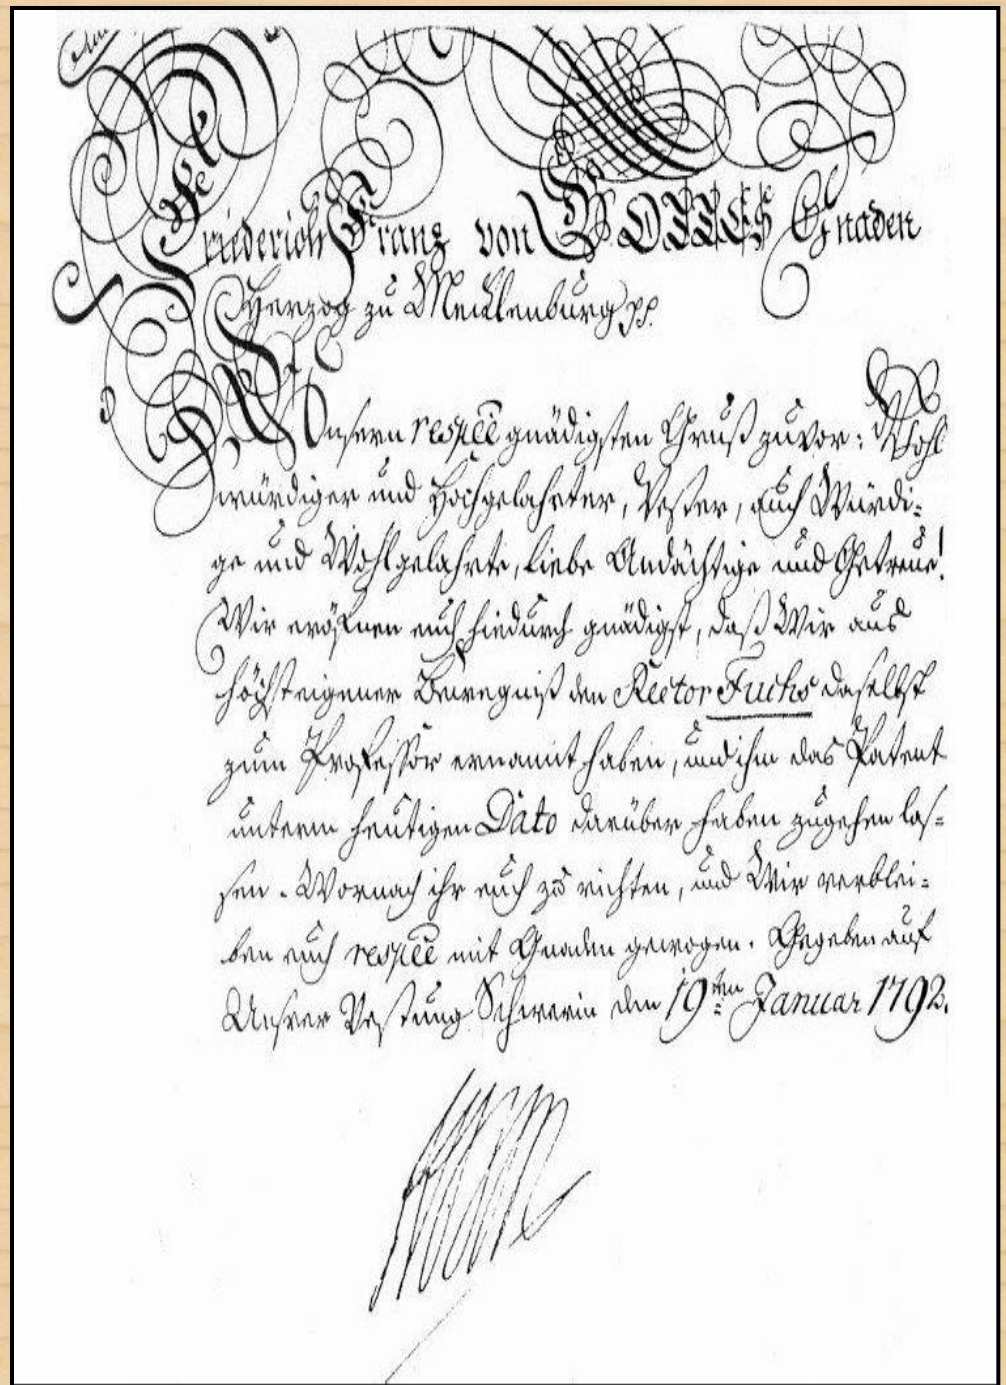 Friederich Franz von GOTTES Gnaden
Herzog zu Mecklenburg pp.
Unsern respée gnädigsten Gruß zuvor: Wohl
würdiger und Hochgelahrter, Vester, auch Würdi-
ge und Wohlgelahrte, liebe Andächtige und Getreue!
Wir eröfnen euch hiedurch gnädigst, daß Wir aus
höchsteigener Bewegniß den Rector Fuchs daselbst
zum Professor ernannt haben, und ihm das Patent
unterm heutigen Dato darüber haben zugehen las-
sen. Wornach ihr euch zu richten, und Wir verblei-
ben euch respée mit Gnaden gewogen. Gegeben auf
Unsrer Vestung Schwerin den 19ten Januar 1792.